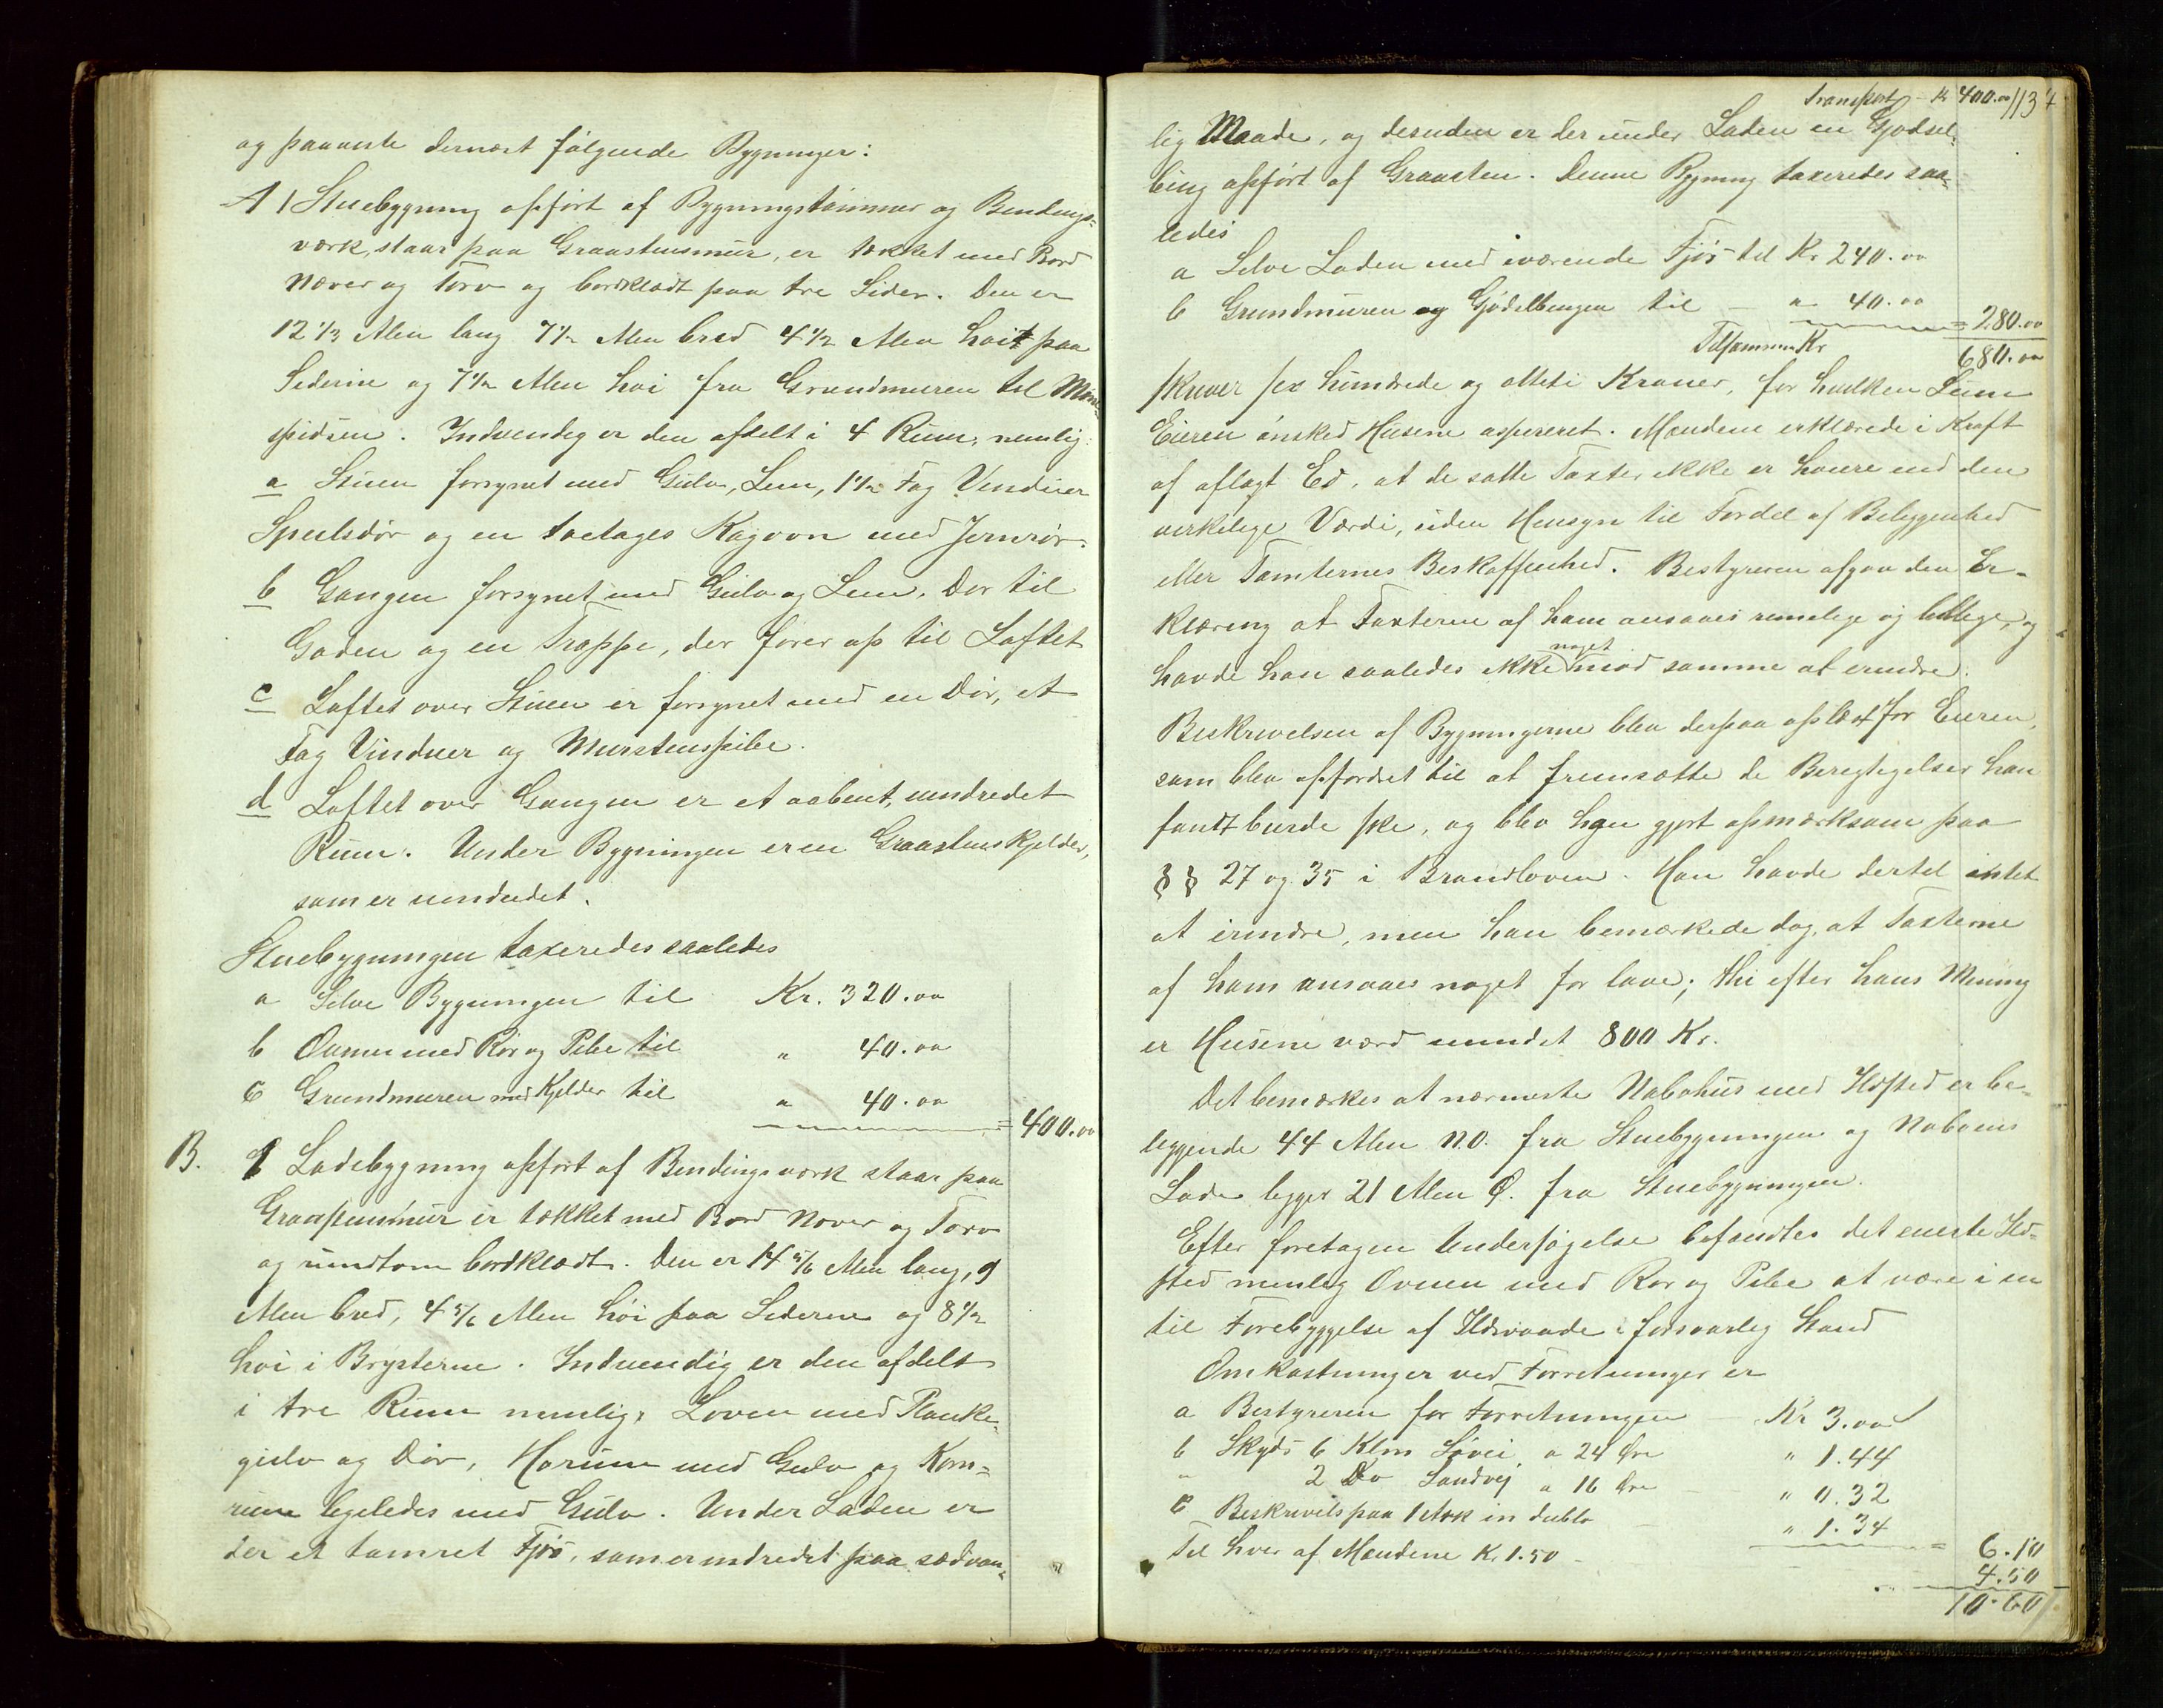 og paaviste dernæst følgende Bygninger:
A 1 Stuebygning opført af Bygningstømmer og Bindings-
værk, staar paa Graastensmur, er tækket med Bord
Næver og Torv og bordklædt paa tre Sider. Den er
12 1/3 Alen lang 7 1/2 Alen bred 4 1/2 Alen høit paa
Siderne og 7 1/2 Alen høi fra Grundmuren til Møne-
spidsen. Indvendig er den afdelt i 4 Rum, nemlig:
a Stuen forsynet med Gulv, Lem, 1 1/2 Fag Vinduer
Speilsdør og en toetages Kagovn med Jernrør.
b Gangen forsynet med Gulv og Lem. Dør til
Gaden og en Trappe, der fører op til Loftet
c Loftet over Stuen er forsynet med en Dør, et
Fag Vinduer og Murstenspibe.
d Loftet over Gangen er et aabent, uindredet
Rum. Under Bygningen er en Graastens Kjelder,
som er uindredet.
Stuebygningen taxeredes saaledes
a Selve Bygningen til Kr. 320.00
b Ovnen med Rør og Pibe til " 40.00
c Grundmuren med Kjelder til " 40.00
= 400.00
B. 1 Ladebygning opført af Bindingsværk staar paa
Graastensmur er tækket med Bord Næver og Torv
og rundtom bordklædt. Den er 14 5/6 Alen lang, 9
Alen bred, 4 5/6 Alen høi paa Siderne og 8 1/2
høi i Brysterne. Indvendig er den afdelt
i tre Rum nemlig: Loven med Planke-
gulv og Dør, Hørum med Gulv og Korn-
rum ligeledes med Gulv. Under Laden er
der et tømret Fjøs, som er indredet paa sædvan-
Transport - Kr 400.00 113
lig Maade, og desuden er der under Laden en Gjødsel-
bing opført af Graasten. Denne Bygning taxeredes saa-
ledes
a Selve Laden med iværende Fjøs til Kr 240.00
b Grundmuren og Gjødelbingen til - " 40.00
= 280.00
Tilsammen Kr 680.00
skriver sex hundrede og otteti Kroner, for hvilken Sum
Eieren ønsked Husene assureret. Mændene erklærede i Kraft
af aflagt Ed, at de satte Taxter ikke er høiere end den
virkelige Værdi, uden Hensyn til Fordel af Beliggenhed
eller Tomternes Beskaffenhed. Bestyreren afgav den Er-
klæring at Taxterne af ham ansaaes rimelige og billige, og
havde han saaledes ikke noget mod samme at erindre.
Beskrivelsen af Bygningerne blev derpaa oplæst for Eieren,
som blev opfordret til at fremsætte de Berigtigelser han
fandt burde ske, og blev han gjort opmærksom paa
§§ 27 og 35 i Brandloven. Han havde dertil intet
at erindre, men han bemærkede dog, at Taxterne
af ham ansaaes noget for lave; thi efter hans Mening
er Husene værd mindst 800 Kr.
Det bemærkes at nærmeste Nabohus med Ildsted er be-
liggende 44 Alen N.O. fra Stuebygningen og Naboens
Lade ligger 21 Alen Ø. fra Stuebygningen.
Efter foretagen Undersøgelse befandtes det eneste Ild-
sted nemlig Ovnen med Rør og Pibe at være i en
til Forebyggelse af Ildsvaade forsvarlig Stand
Omkostninger ved Forretninger er
a Bestyreren for Forretningen Kr 3.00
b Skyds 6 Klm Søvei a 24 Øre " 1.44
" 2 Do Landvej a 16 Øre " 0.32
c Beskrivels paa 1 Ark in dublo " 1.34
= 6.10
Til hver af Mændene Kr. 1.50 - 4.50
10.60